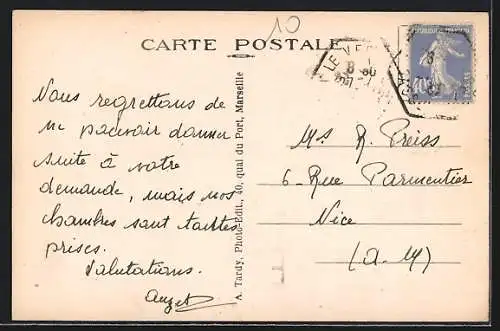 10
CARTE POSTALE
Nous regrettons de
ne pouvoir donner
suite à votre
demande, mais nos
chambres sont toutes
prises.
Salutations.
A. Tardy, Photo-Edit., 40, quai du Port, Marseille
R. Preiss
6 - Rue Parmentier
Nice
(A-M)